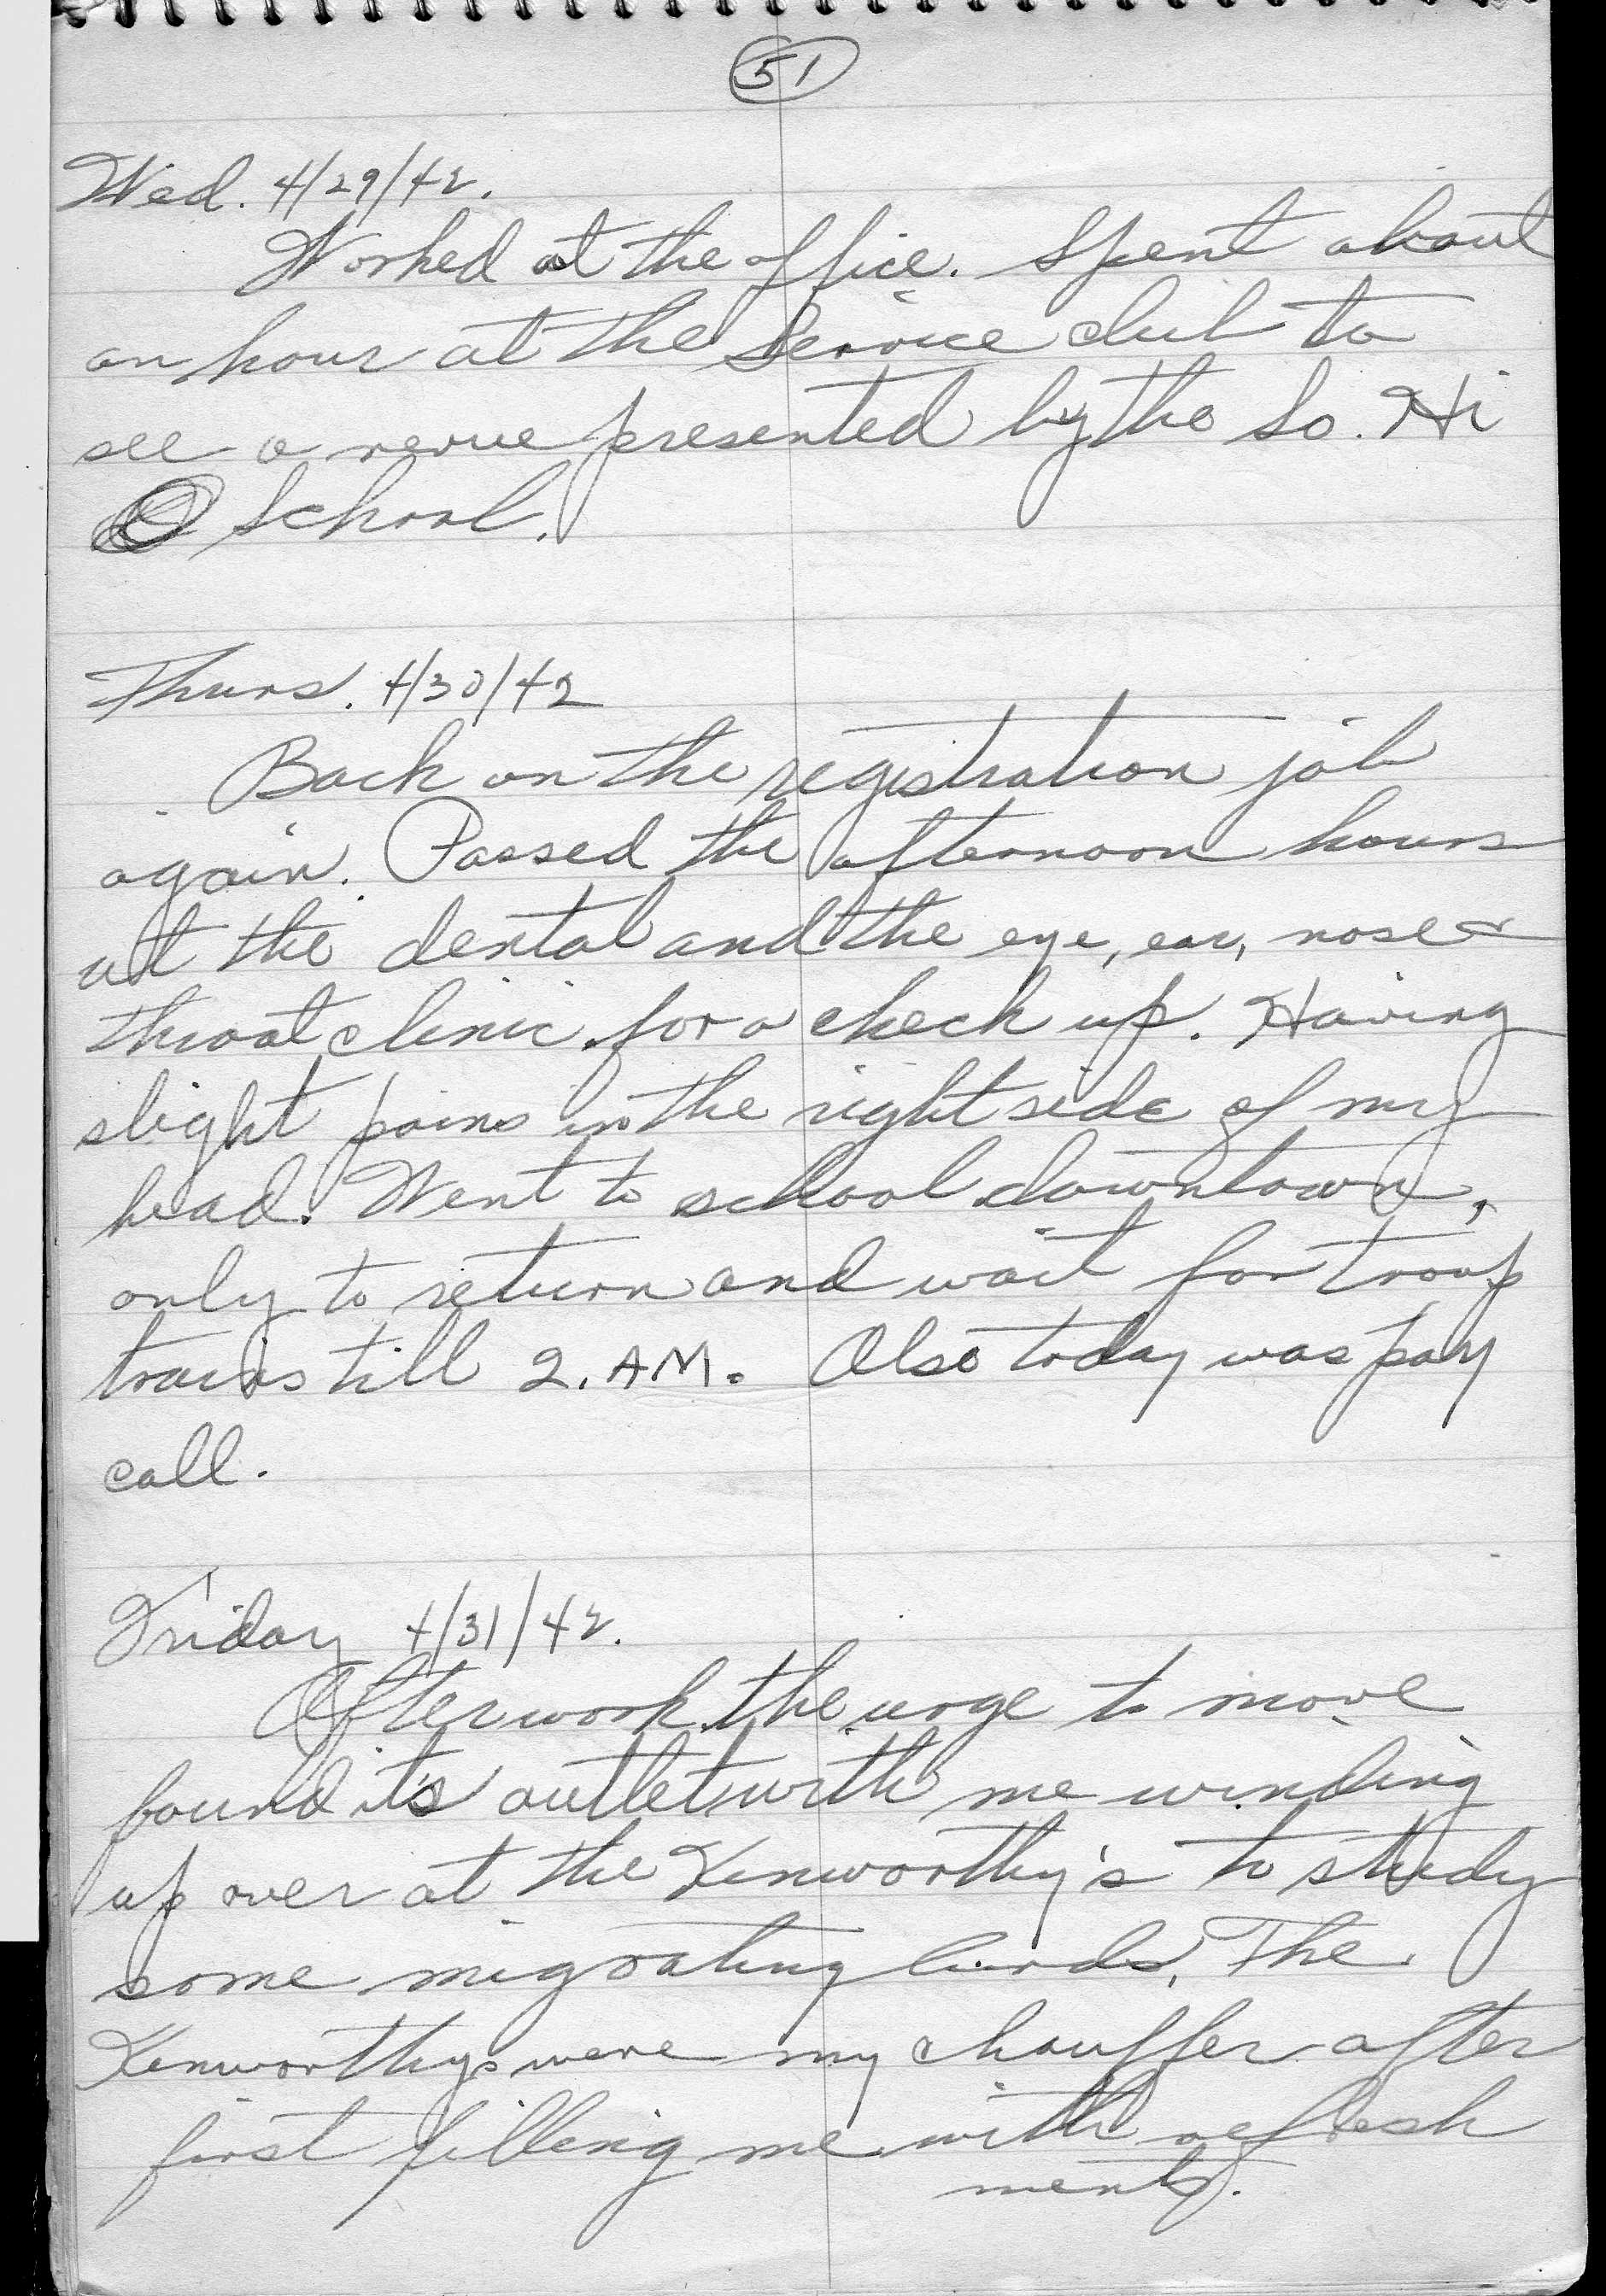 51
Wed. 4/29/42.
Worked at the office. Spent about
an hour at the Service club to
see a revue presented by the So. Hi
School.
Thurs. 4/30/42
Back on the registration job
again. Passed the afternoon hours
at the dental and the eye, ear, nose &
throat clinic for a check up. Having
slight pains in the right side of my
head. Went to school downtown,
only to return and wait for troop
trains till 2. AM. Also today was pay
call.
Friday 4/31/42.
After work the urge to move
found it's outlet with me winding
up over at the Kenworthy's to study
some migrating birds. The
Kenworthys were my chauffer after
first filling me with refresh
ments.